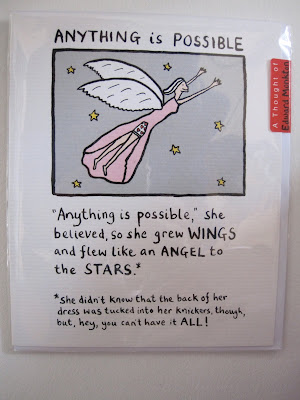 ANYTHING is POSSIBLE
A Thought of
Edward Monkton
"Anything is possible," she
believed, so she grew WINGS
and flew like an ANGEL to
the STARS.*
*She didn't know that the back of her
dress was tucked into her knickers, though,
but, hey, you can't have it ALL!